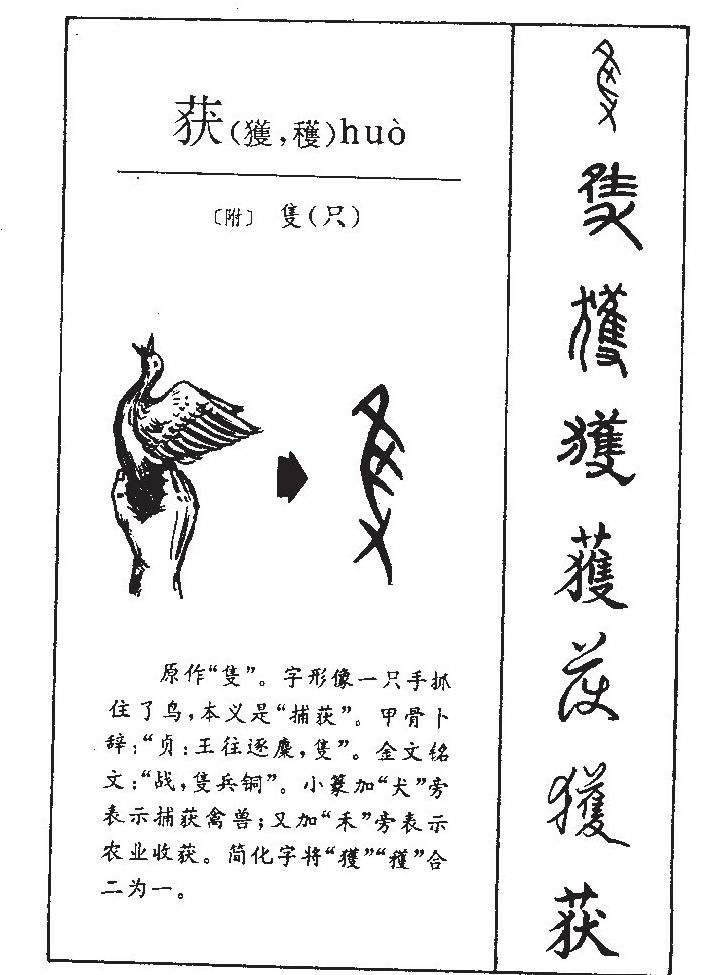 获(獲,穫)huò
〔附〕 隻(只)
原作“隻”。字形像一只手抓
住了鸟,本义是“捕获”。甲骨卜
辞:“贞:王往逐麋,隻”。金文铭
文:“战,隻兵铜”。小篆加“犬”旁
表示捕获禽兽;又加“禾”旁表示
农业收获。简化字将“獲”“穫”合
二为一。
隻
隻
獲
獲
獲
获
獲
获